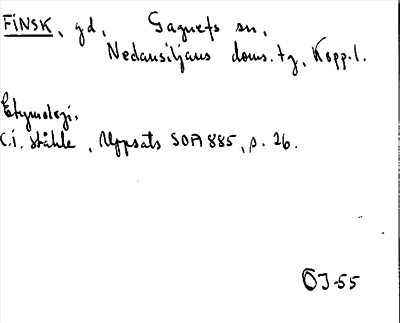 FINSK, gd, Gagnefs sn,
Nedansiljans doms.tg, Kopp.l.
Etymologi.
C.I. Ståhle, Uppsats SOA 885, p. 26.
ÖJ-55